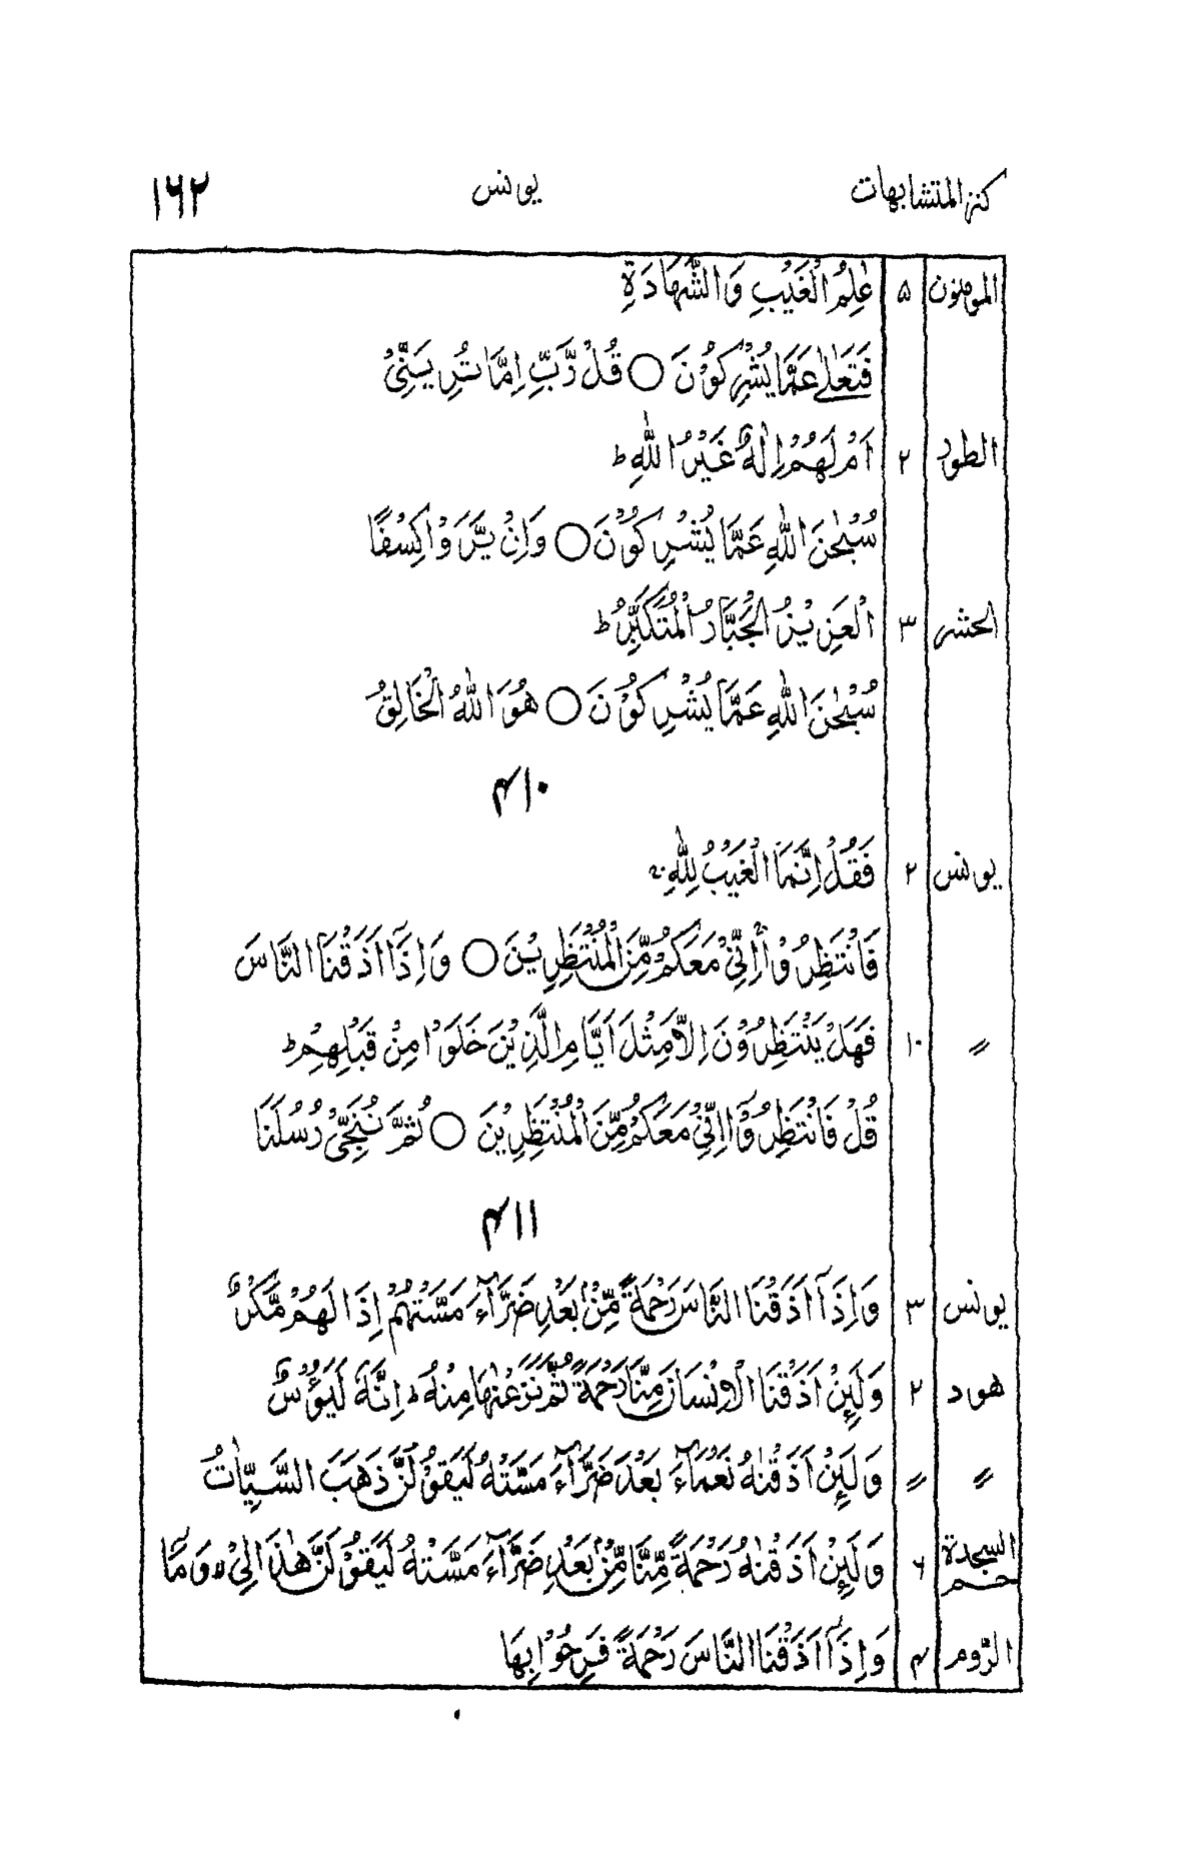 كنز المتشابهات يونس ۱۶۲
المومنون ۵ عٰلِمِ الْغَيْبِ وَالشَّهَادَةِ
فَتَعٰلٰى عَمَّا يُشْرِكُوْنَ ○ قُلْ رَّبِّ اِمَّا تُرِيَنِّيْ
الطور ۲ اَمْ لَهُمْ اِلٰهٌ غَيْرُ اللّٰهِ ؕ
سُبْحٰنَ اللّٰهِ عَمَّا يُشْرِكُوْنَ ○ وَاِنْ يَّرَوْا كِسْفًا
الحشر ۳ الْعَزِيْزُ الْجَبَّارُ الْمُتَكَبِّرُ ؕ
سُبْحٰنَ اللّٰهِ عَمَّا يُشْرِكُوْنَ ○ هُوَ اللّٰهُ الْخَالِقُ
۴۱۰
يونس ۲ فَقُلْ اِنَّمَا الْغَيْبُ لِلّٰهِ
فَانْتَظِرُوْا اِنِّيْ مَعَكُمْ مِّنَ الْمُنْتَظِرِيْنَ ○ وَاِذَآ اَذَقْنَا النَّاسَ
〃 ۱۰ فَهَلْ يَنْتَظِرُوْنَ اِلَّا مِثْلَ اَيَّامِ الَّذِيْنَ خَلَوْا مِنْ قَبْلِهِمْ ؕ
قُلْ فَانْتَظِرُوْٓا اِنِّيْ مَعَكُمْ مِّنَ الْمُنْتَظِرِيْنَ ○ ثُمَّ نُنَجِّيْ رُسُلَنَا
۴۱۱
يونس ۳ وَاِذَآ اَذَقْنَا النَّاسَ رَحْمَةً مِّنْۢ بَعْدِ ضَرَّآءَ مَسَّتْهُمْ اِذَا لَهُمْ مَّكْرٌ
هود ۲ وَلَئِنْ اَذَقْنَا الْاِنْسَانَ مِنَّا رَحْمَةً ثُمَّ نَزَعْنٰهَا مِنْهُ ۚ اِنَّهٗ لَيَؤُسٌ
〃 〃 وَلَئِنْ اَذَقْنٰهُ نَعْمَآءَ بَعْدَ ضَرَّآءَ مَسَّتْهُ لَيَقُوْلَنَّ ذَهَبَ السَّيِّاٰتُ
حم السجدة ۶ وَلَئِنْ اَذَقْنٰهُ رَحْمَةً مِّنَّا مِنْۢ بَعْدِ ضَرَّآءَ مَسَّتْهُ لَيَقُوْلَنَّ هٰذَا لِيْ ۙ وَمَآ
الرّوم ۴ وَاِذَآ اَذَقْنَا النَّاسَ رَحْمَةً فَرِحُوْا بِهَا